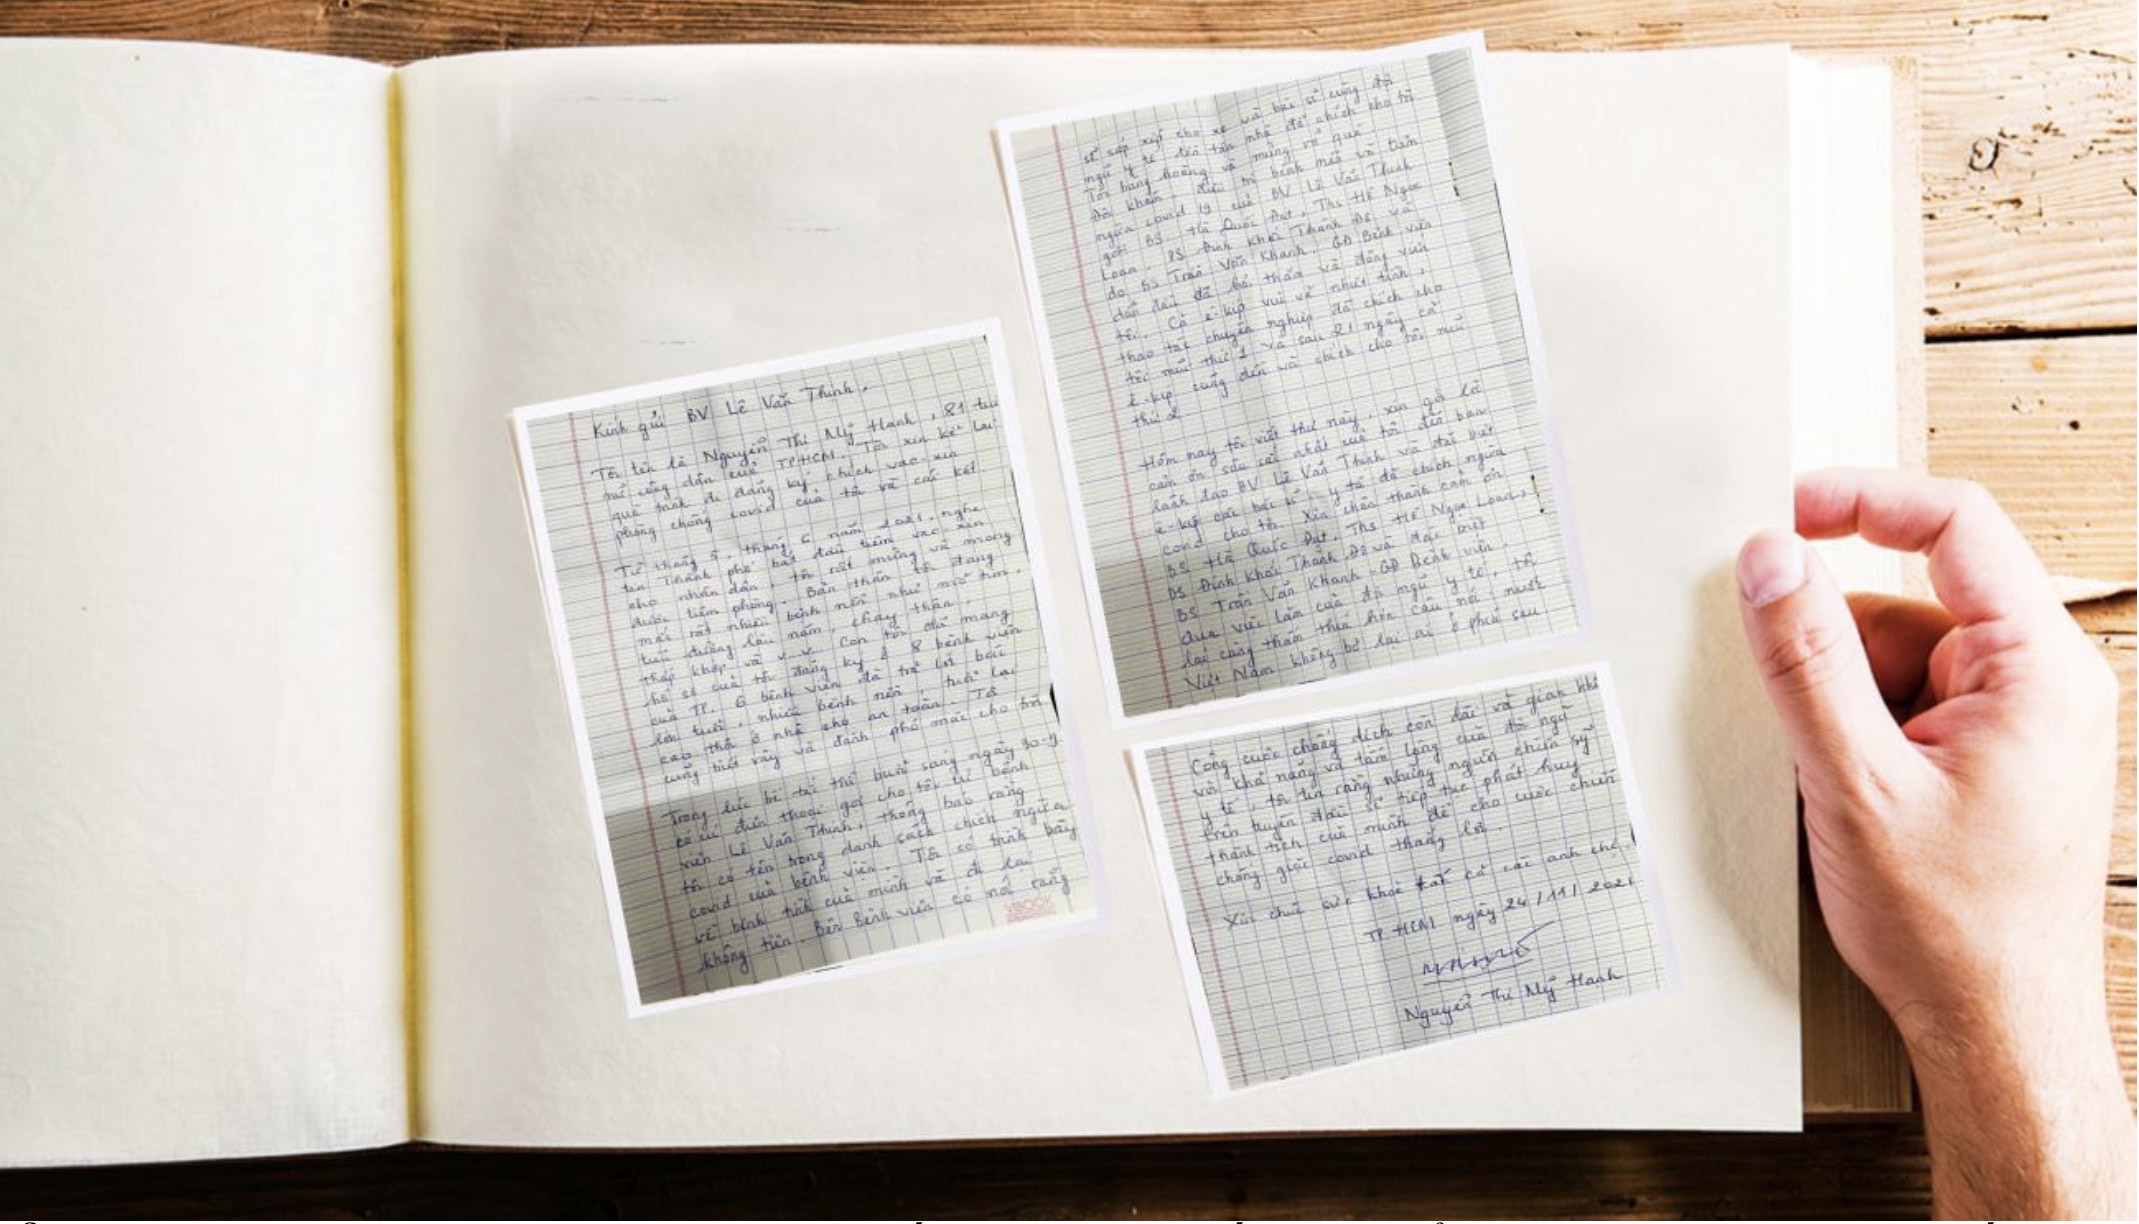 Kính gửi BV Lê Văn Thịnh,
Tôi tên là Nguyễn Thị Mỹ Hạnh, 81 tuổi
một công dân của TPHCM. Tôi xin kể lại
quá trình đi đăng ký chích vac xin
phòng chống covid của tôi và cái kết
Từ tháng 5, tháng 6 năm 2021, nghe
tin thành phố bắt đầu tiêm vac xin
cho nhân dân, tôi rất mừng và mong
được tiêm phòng. Bản thân tôi đang
mắc rất nhiều bệnh nền như mổ tim,
tiểu đường lâu năm, chạy thận,
thấp khớp và v.v. Con tôi đã mang
hồ sơ của tôi đăng ký ở 8 bệnh viện
của TP. 6 bệnh viện đã trả lời bà
lớn tuổi, nhiều bệnh nền, tuổi lại
cao thôi ở nhà cho an toàn. Tôi
cũng biết vậy và đành phó mặc cho trời
Trong lúc bế tắc thì buổi sáng ngày 30-9
có cú điện thoại gọi cho tôi từ bệnh
viện Lê Văn Thịnh, thông báo rằng
tôi có tên trong danh sách chích ngừa
covid của bệnh viện. Tôi có trình bày
về bệnh tình của mình và đi lại
không tiện. Bên Bệnh viện có nói rằng
VBOOK
sẽ sắp xếp cho xe và bác sĩ cùng đội
ngũ y tế đến tận nhà để chích cho tôi.
Tôi bàng hoàng và mừng rỡ quá.
Đội khám, điều trị bệnh mới và tiêm
ngừa covid 19 của BV Lê Văn Thịnh
gồm BS. Hà Quốc Đạt, Ths Hồ Ngọc
Loan, BS Đinh Khắc Thành Đô và
do BS Trần Văn Khanh, GĐ Bệnh viện
dẫn đầu đã hỏi thăm và động viên
tôi. Cả ê-kíp vui vẻ nhiệt tình,
thao tác chuyên nghiệp đã chích cho
tôi mũi thứ 1 và sau 21 ngày cả
ê-kíp cũng đến và chích cho tôi mũi
thứ 2
Hôm nay tôi viết thư này, xin gởi lời
cảm ơn sâu sắc nhất của tôi đến ban
lãnh đạo BV Lê Văn Thịnh và đặc biệt
ê-kíp các bác sĩ, y tá đã chích ngừa
covid cho tôi. Xin chân thành cảm ơn
BS Hà Quốc Đạt, Ths Hồ Ngọc Loan,
BS Đinh Khắc Thành Đô và đặc biệt
BS Trần Văn Khanh - GĐ Bệnh viện.
Qua việc làm của đội ngũ y tế, tôi
lại càng thấm thía hơn câu nói, nước
Việt Nam không bỏ lại ai ở phía sau
Công cuộc chống dịch còn dài và gian khó
với khả năng và tấm lòng của đội ngũ
y tế, tôi tin rằng những người chiến sỹ
trên tuyến đầu sẽ tiếp tục phát huy
thành tích của mình để cho cuộc chiến
chống giặc covid thắng lợi.
Xin chúc sức khỏe tất cả các anh chị.
TP. HCM ngày 24/11/2021
Nguyễn Thị Mỹ Hạnh